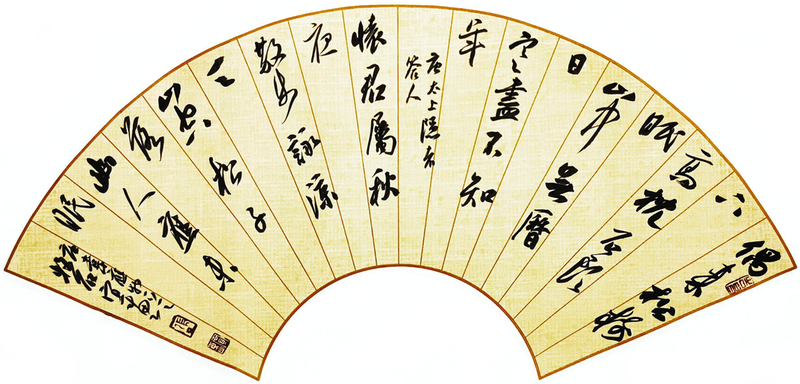 偶來松樹
下
高枕石頭
眠
山中無曆
日
寒盡不知
年
唐太上隱者
答人
懷君屬秋
夜
散步詠涼
天
空山松子
落
幽人應未
眠
唐韋應物